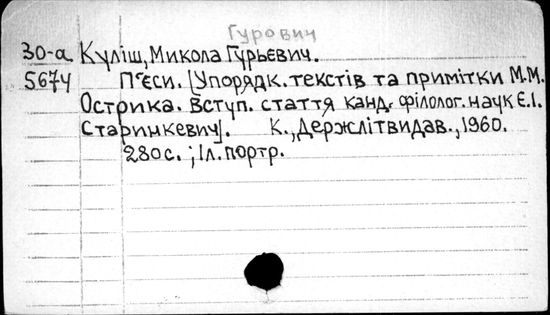 Гурович
30-а Куліш, Микола Гурьєвич.
5674 П'єси. [Упорядк. текстів та примітки М.М.
Острика. Вступ. стаття канд. філолог. наук Є.І.
Старинкевич]. К., Держлітвидав., 1960.
280с.; Іл. портр.